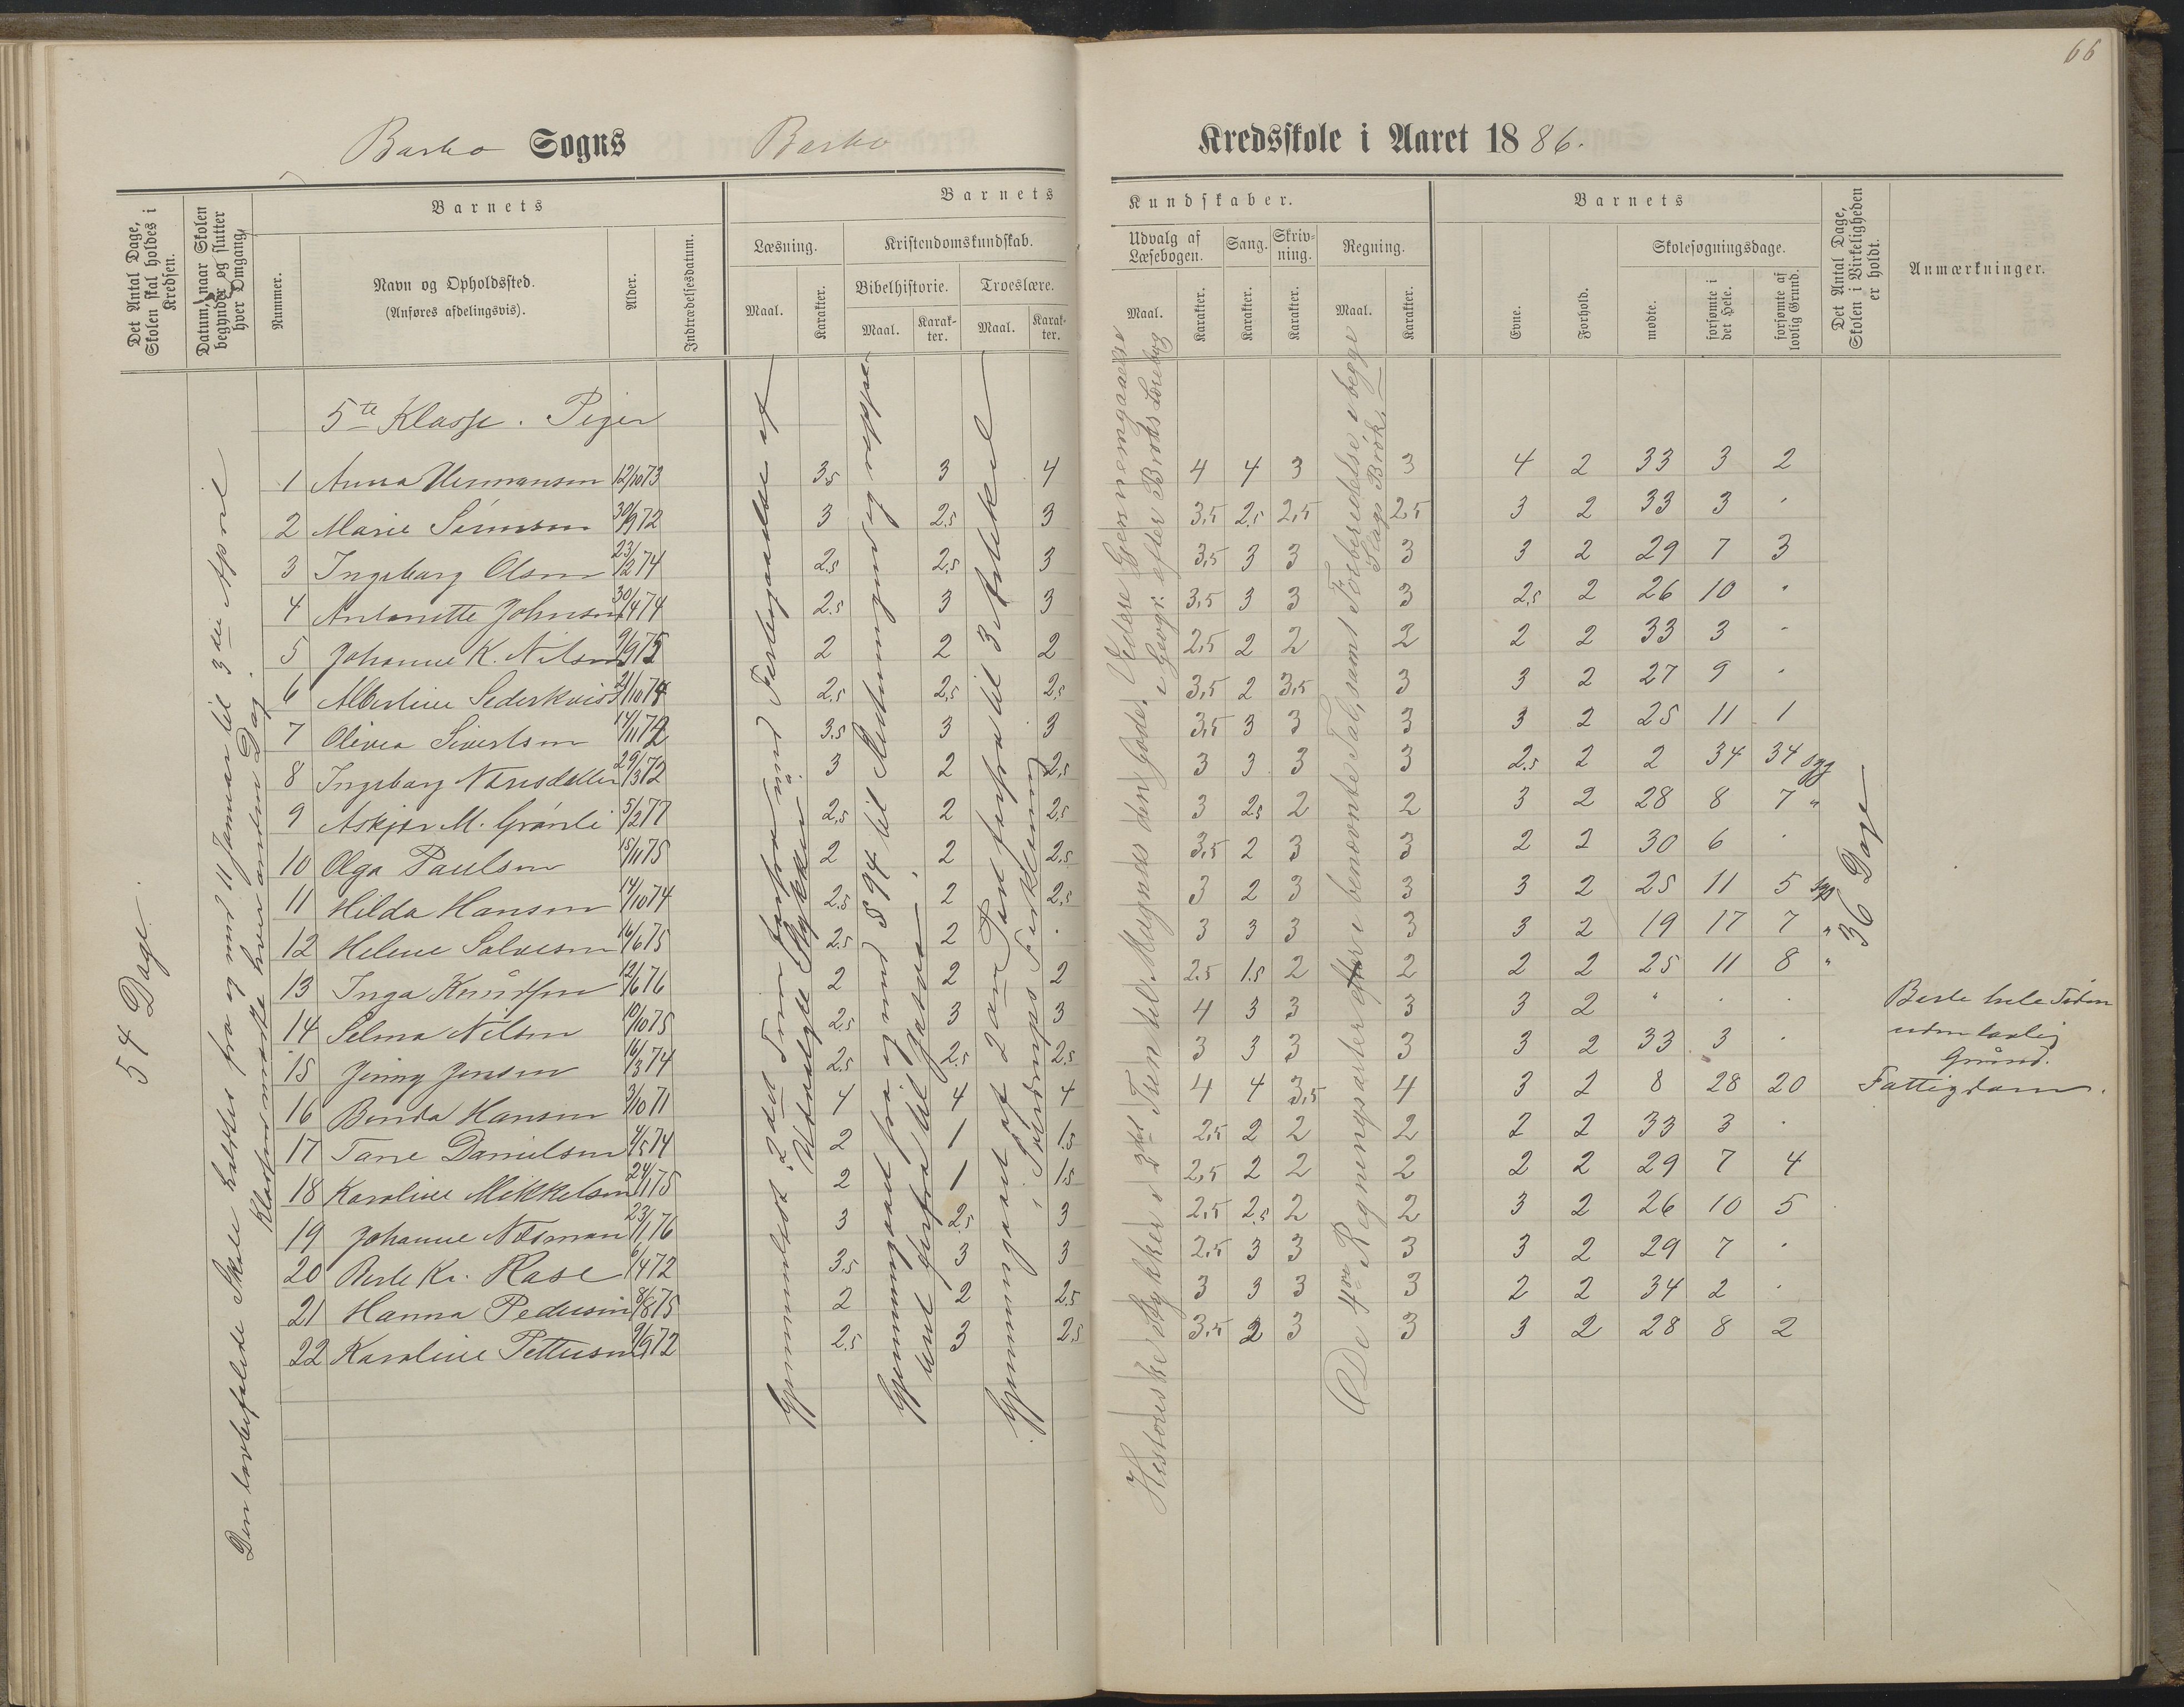 66
Barbo Sogns Barbo Kredsskole i Aaret 1886.
Det Antal Dage, Skolen skal holdes i Kredsen.
Datum, naar Skolen begynder og slutter hver Omgang.
Barnets
Nummer.
Navn og Opholdssted.
(Anføres afdelingsvis).
Alder.
Indtrædelsesdatum.
Barnets Kundskaber.
Læsning.
Maal. Karakter.
Kristendomskundskab.
Bibelhistorie. Troeslære.
Maal. Karakter. Maal. Karakter.
Udvalg af Læsebogen.
Maal. Karakter.
Sang. Karakter.
Skrivning. Karakter.
Regning.
Maal. Karakter.
Barnets
Evne. Forhold.
Skolesøgningsdage.
mødte. forsømte i det Hele. forsømte af lovlig Grund.
Det Antal Dage, Skolen i Virkeligheden er holdt.
Anmærkninger.
54 Dage.
Den lovbefalede Skole holdtes fra og med 11 Januar til 3die April
Klasserne mødte hver anden Dag.
Gjennemlæst 2det Trin forfra med Forbigaaelse af
Udvalgte Stykker
Gjennemgaaet fra og med § 94 til Slutningen og opp
Gjennemgaaet af 2den Part forfra til 3die Artikel
i Sørdrups Forklaring
Historiske Stykker i 3die Trin til Magnus den Gode. Videre Gjennemgaaelse
i Geogr. efter Broks Lærebog
De 4re Regningsarter i benævnte Tal, samt Forberedelse i begge
Slags Brøk.
36 Dage
5te Klasse. Piger
1 Anna Hermansen 12/10 73 3.5 3 4 4 4 3 3 4 2 33 3 2
2 Marie Simonsen 30/9 72 3 2.5 3 3,5 2.5 2,5 2.5 3 2 33 3 .
3 Ingeborg Olsen 23/12 74 2.5 2.5 3 3,5 3 3 3 3 2 29 7 3
4 Antonette Johnsen 30/4 74 2.5 3 3 3,5 3 3 3 2.5 2 26 10 .
5 Johanne K. Nilsen 9/9 75 2 2 2 2,5 2 2 2 2 2 33 3 .
6 Albertine Sederkvist 21/10 74 2.5 2.5 2.5 3,5 2 3,5 3 3 2 27 9 .
7 Olivia Sivertsen 14/11 72 3.5 3 3 3,5 3 3 3 3 2 25 11 1
8 Ingeborg Nærisdatter 29/3 72 3 2 2.5 3 3 3 3 2.5 2 2 34 34 syg
9 Askjær M. Grønli 5/2 77 2,5 2 2,5 3 2.5 2 2 3 2 28 8 7 "
10 Olga Paulsen 15/11 75 2 2 2.5 3,5 2 3 3 2 2 30 6 .
11 Hilda Hansen 14/10 74 2.5 2 2,5 3 2 3 3 3 2 25 11 5 syg
12 Helene Salvesen 16/6 75 2.5 2 . 3 3 3 3 3 2 19 17 7 "
13 Inga Knudsen 12/6 76 2 2 2 2.5 1.5 2 2 2 2 25 11 8 "
14 Selma Nilsen 10/10 75 2.5 3 3 4 3 3 3 3 2 " . . Borte hele Tiden
uden lovlig
Grund.
15 Jenny Jensen 16/3 74 2.5 2.5 2.5 3 3 3 3 3 2 33 3 .
16 Benda Hansen 3/10 71 4 4 4 4 4 3,5 4 3 2 8 28 20 Fattigdom.
17 Tarre Danielsen 4/5 74 2 1 1.5 2,5 2 2 2 2 2 33 3 .
18 Karoline Mikkelsen 24/1 75 2 1 1.5 2,5 2 2 2 2 2 29 7 4
19 Johanne Næsman 23/1 76 3 2.5 3 2,5 2.5 2 2 3 2 26 10 5
20 Berte Kr. Rase 6/4 72 3.5 3 3 2.5 3 3 3 3 2 29 7 .
21 Hanna Pedersen 8/8 75 2 2 2.5 3 3 3 3 2 2 34 2 .
22 Karoline Pettersen 9/9 72 2.5 3 2.5 3,5 2 3 3 3 2 28 8 2